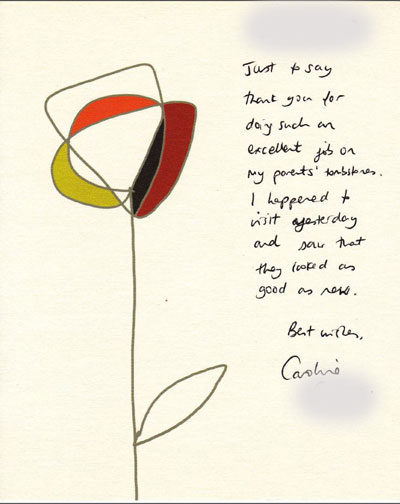 Just to say
thank you for
doing such an
excellent job on
my parents' tombstones.
I happened to
visit yesterday
and saw that
they looked as
good as new.
Best wishes,
Caroline